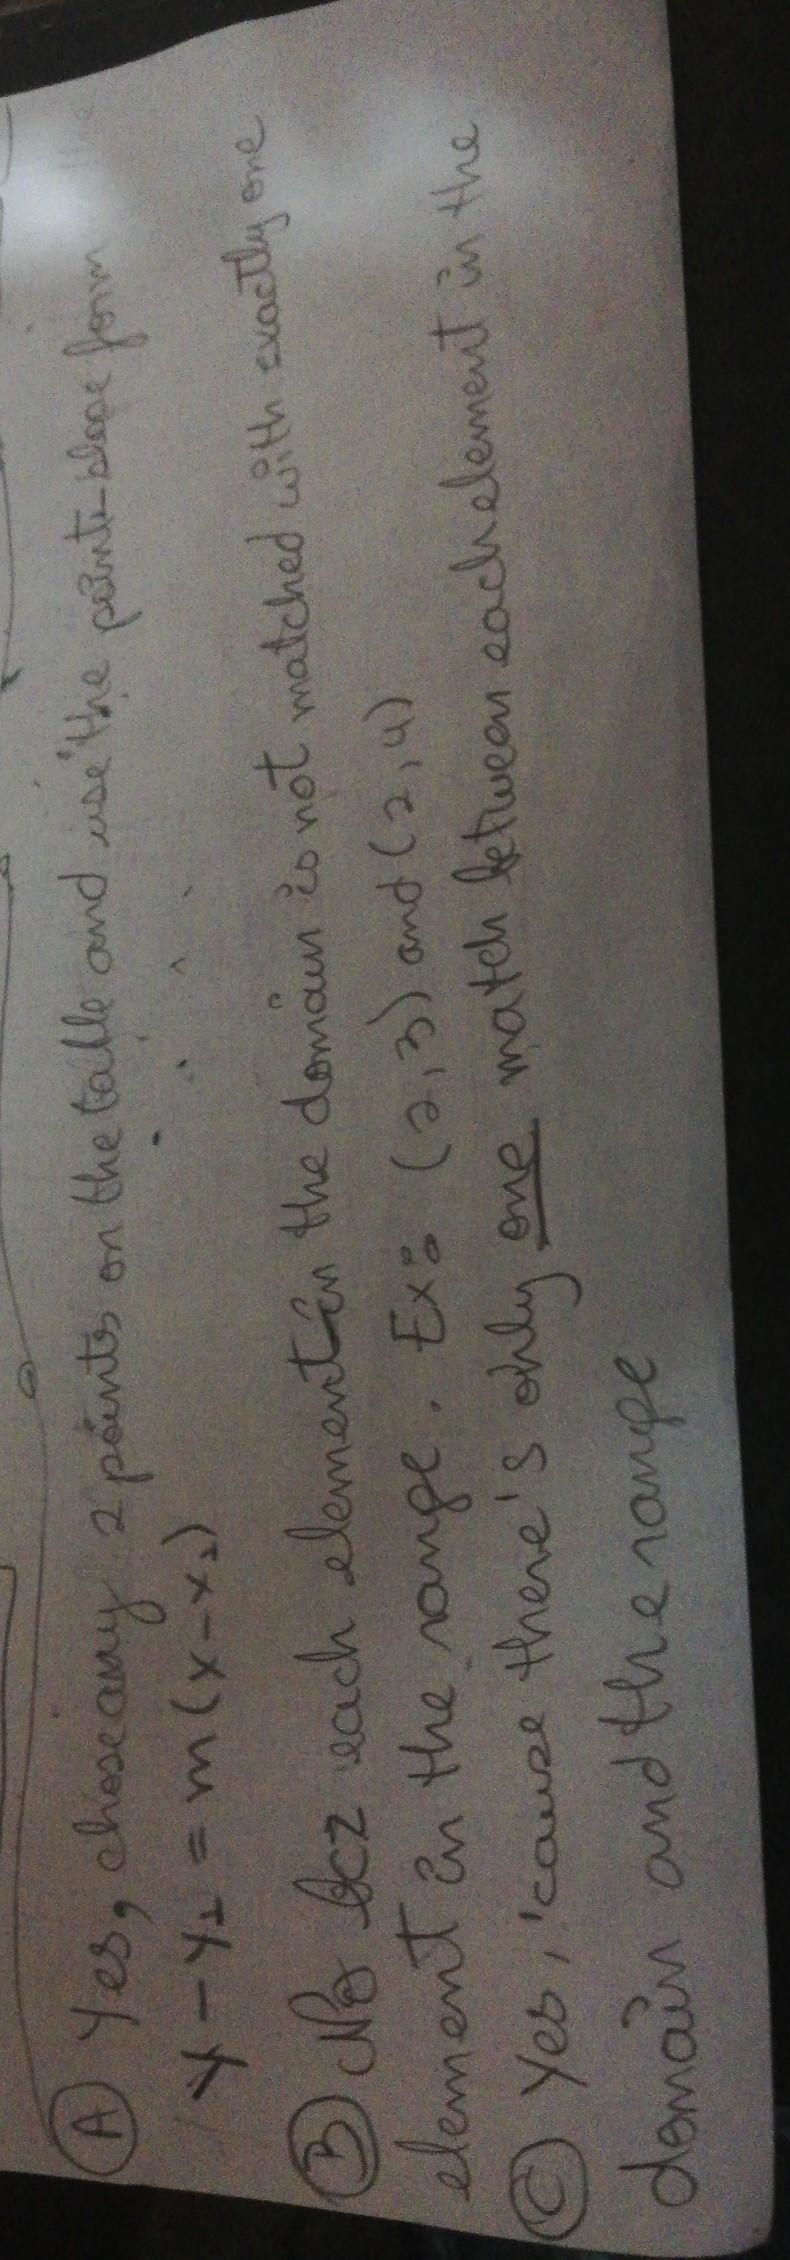 (A) Yes, chose any 2 points on the table and use the point-slope form
y - y₁ = m(x - x₁)
(B) No bcz each element in the domain is not matched with exactly one
element in the range. Ex: (2,3) and (2,4)
(C) Yes, 'cause there's only one match between each element in the
domain and the range